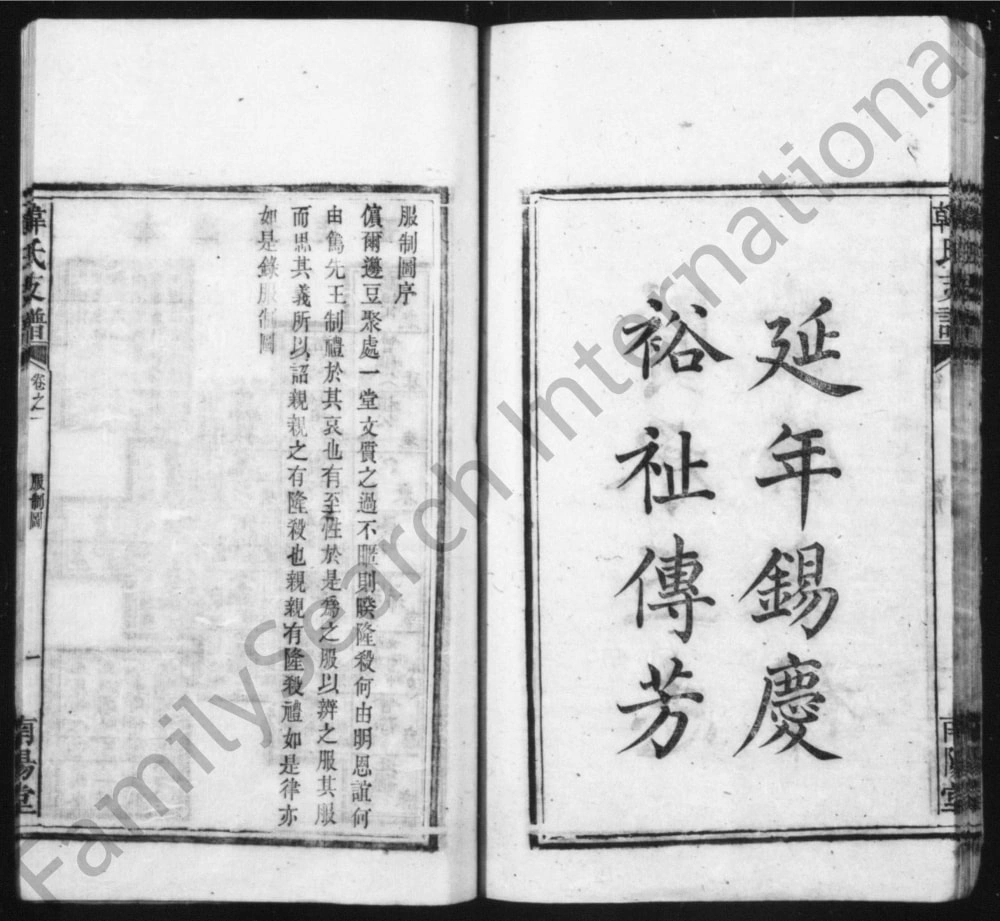 延年錫慶
裕祉傳芳
韓氏支譜
南陽堂
服制圖序
儐爾籩豆聚處一堂文質之過不體則睽隆殺何由明恩誼何
由篤先王制禮於其哀也有至性於是爲之服以辨之服其服
而思其義所以詔親親之有隆殺也親親有隆殺禮如是律亦
如是錄服制圖
韓氏支譜
卷之一
服制圖
一
南陽堂
FamilySearch International